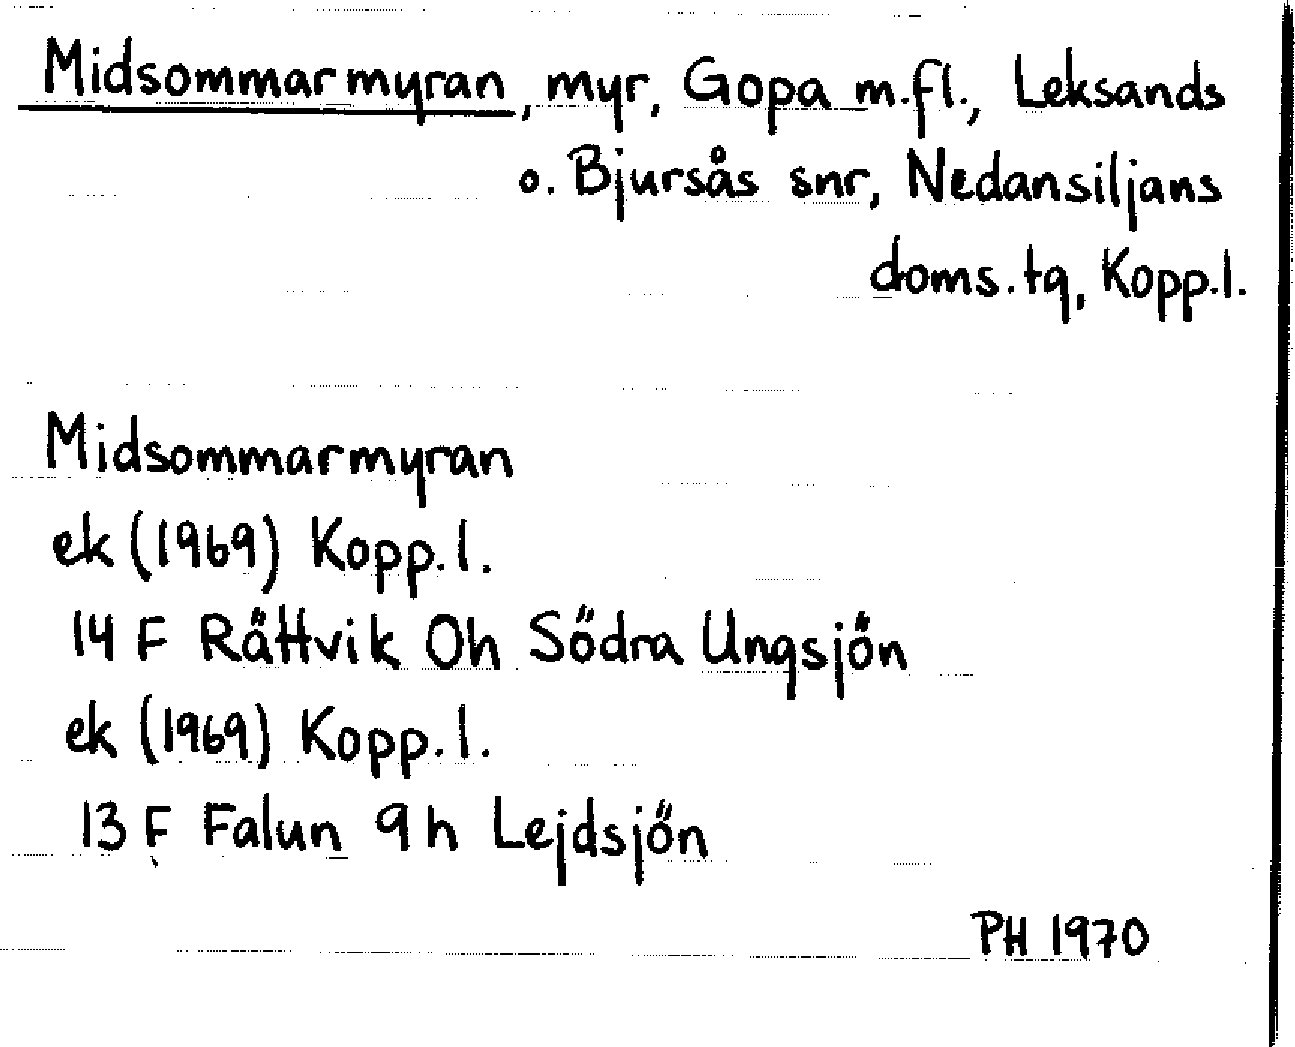 Midsommarmyran, myr, Gopa m.fl., Leksands
o. Bjursås snr, Nedansiljans
doms.tg, Kopp.l.
Midsommarmyran
ek (1969) Kopp.l.
14 F Rättvik 0h Södra Ungsjön
ek (1969) Kopp.l.
13 F Falun 9h Lejdsjön
PH 1970